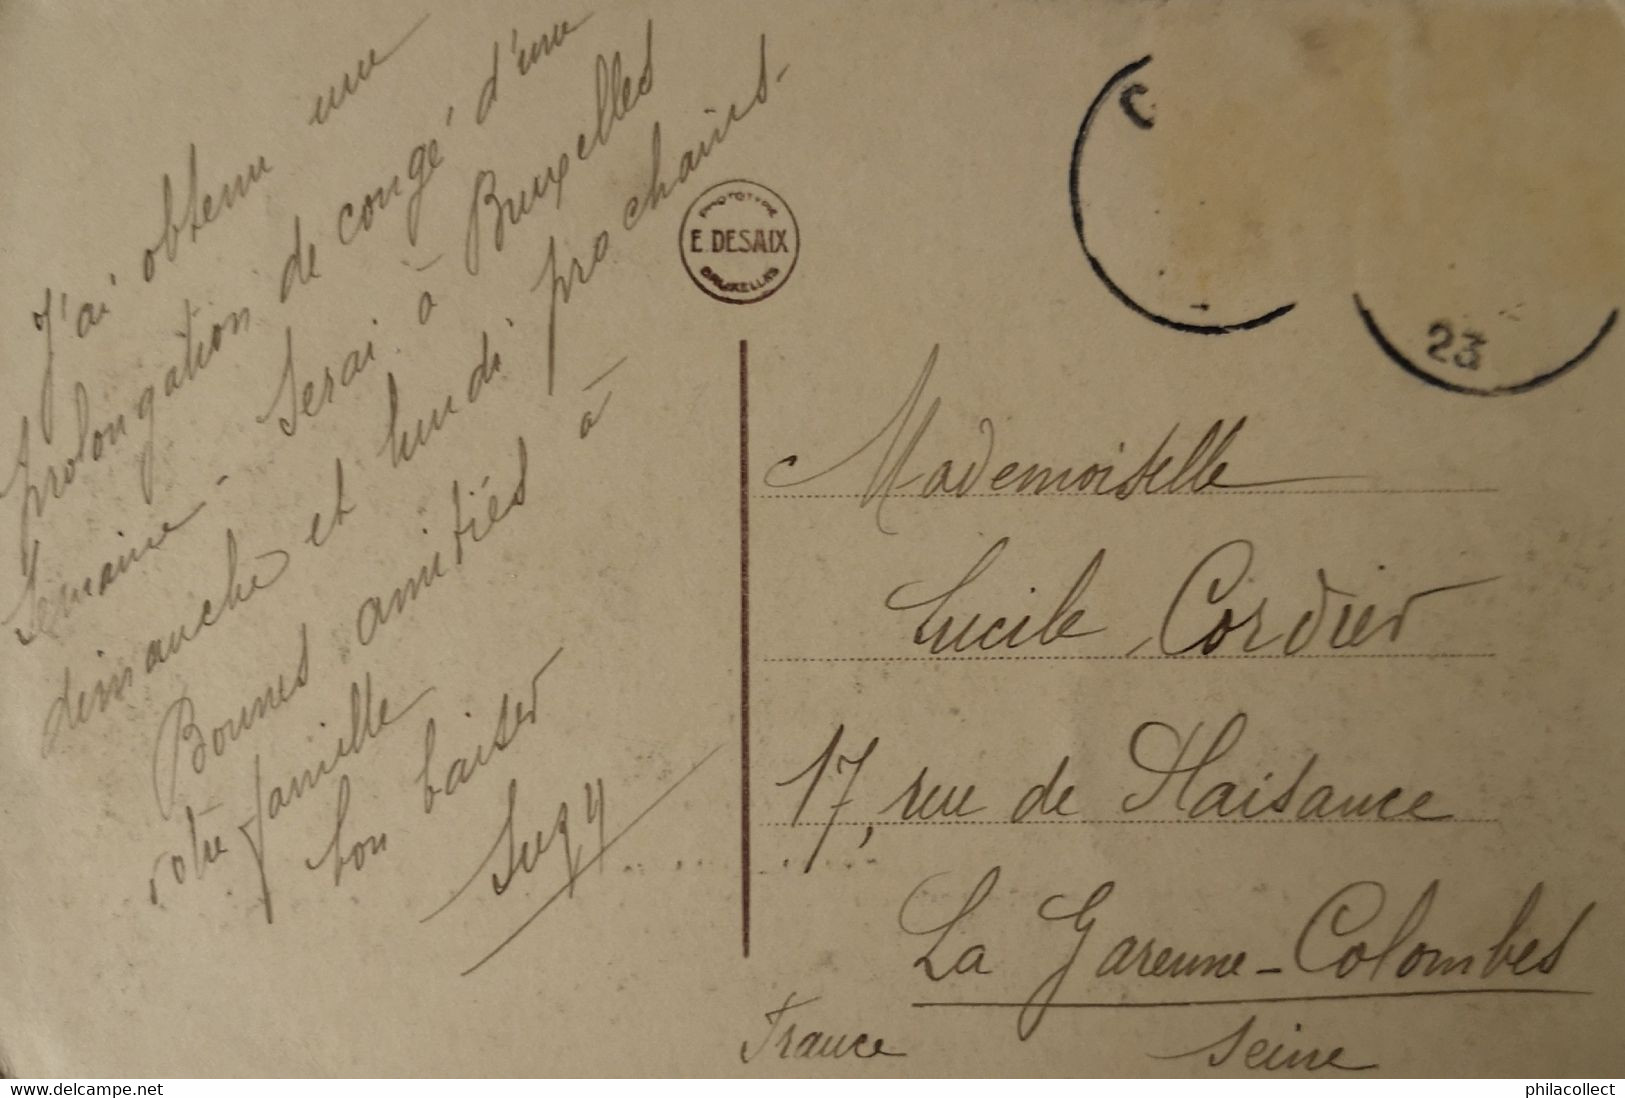 J'ai obtenu une
prolongation de congé d'une
semaine - Serai à Bruxelles
dimanche et lundi prochains -
Bonnes amitiés à
votre famille
bon baiser
Suzy
PHOTOTYPIE
E. DESAIX
BRUXELLES
23
Mademoiselle
Lucile Cordier
17, rue de Plaisance
La Garenne-Colombes
France Seine
delcampe.net
philacollect